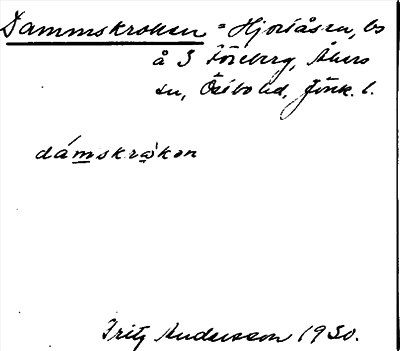 Dammskroken = Hjortåsen, bs
å S Föreberg, Åkers
sn, Östbo hd, Jönk. l.
dámskrokən
Fritz Andersson 1930.